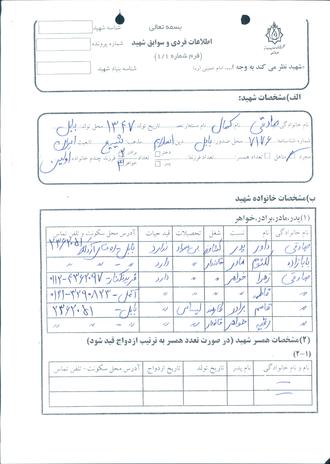 بسمه تعالی
شناسه شهید
اطلاعات فردی و سوابق شهید
شماره پرونده
(فرم شماره ۴/۱)
«شهید نظر می کند به وجه ا... » امام خمینی (ره)
شناسه بنیاد شهید
الف) مشخصات شهید:
نام خانوادگی صادقی نام کمال نام مستعار تاریخ تولد ۱۳۴۷ محل تولد بابل
شناسنامه ۷۱۷۶ محل صدور بابل دین اسلام مذهب تشیع تابعیت ایران
مجرد متأهل تعداد همسر تعداد فرزند دختر پسر تعداد برادر خواهر چندم خانواده اولین
ب) مشخصات خانواده شهید
(۱) پدر، مادر، برادر، خواهر
نام خانوادگی نام نسبت شغل تحصیلات قید حیات آدرس محل سکونت و تلفن تماس
صادقی داور پدر کشاورز بی سواد ندارد بابل
بابازاده کلثوم مادر خانه‌دار " دارد
صادقی زهرا خواهر " دارد فریدونکنار
" فاطمه " " " " آمل
" قاسم برادر کارمند لیسانس " بابل ۲۳۶۲۰۵۱
" رقیه خواهر خانه‌دار
(۲) مشخصات همسر شهید (در صورت تعدد همسر به ترتیب ازدواج قید شود)
(۲-۱)
نام و نام خانوادگی نام پدر تاریخ تولد تاریخ ازدواج آدرس محل سکونت و تلفن تماس